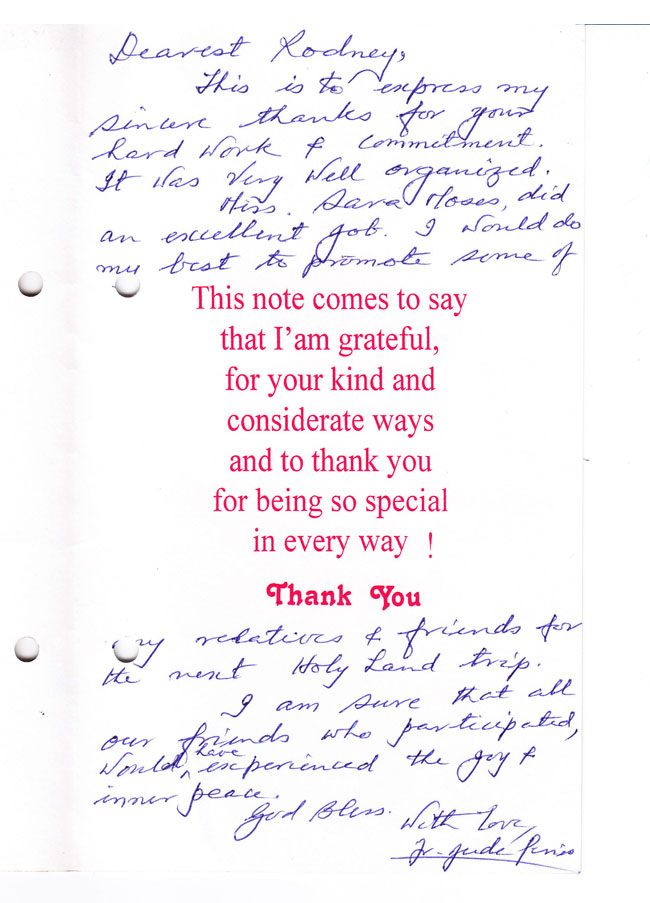 Dearest Rodney,
This is to express my
sincere thanks for your
hard work & commitment.
It was very well organized.
Miss. Sara Moses, did
an excellent job. I would do
my best to promote some of
This note comes to say
that I’am grateful,
for your kind and
considerate ways
and to thank you
for being so special
in every way !
Thank You
my relatives & friends for
the next Holy Land trip.
I am sure that all
our friends who participated,
would have experienced the joy &
inner peace.
God Bless.
With Love,
Fr. Jude